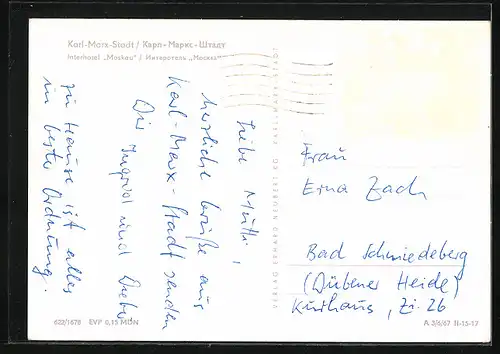 Karl-Marx-Stadt / Карл-Маркс-Штадт
Interhotel „Moskau“ / Интеротель „Москва“
Liebe Mutti,
herzliche Grüße aus
Karl-Marx-Stadt senden
Dir Ingrid und Dieter
zu Hause ist alles
in bester Ordnung.
VERLAG ERHARD NEUBERT KG KARL-MARX-STADT
Frau
Erna Zach
Bad Schmiedeberg
(Dübener Heide)
Kurhaus, Zi. 26
622/1678 EVP 0,15 MDN
A 3/6/67 II-15-17